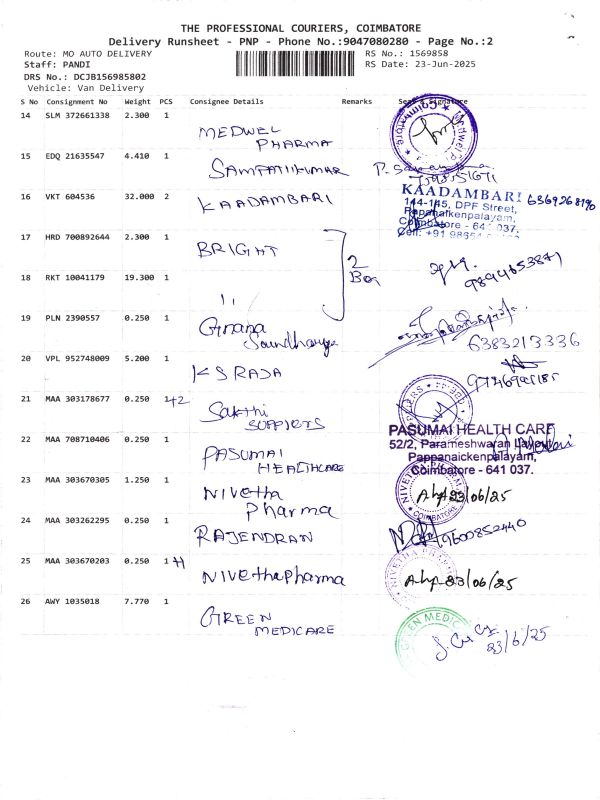 THE PROFESSIONAL COURIERS, COIMBATORE
Delivery Runsheet - PNP - Phone No.:9047080280 - Page No.:2
Route: MO AUTO DELIVERY RS No.: 1569858
Staff: PANDI RS Date: 23-Jun-2025
DRS No.: DCJB156985802
Vehicle: Van Delivery
S No Consignment No Weight PCS Consignee Details Remarks Seal & Signature
14 SLM 372661338 2.300 1
MEDWEL PHARMA
15 EDQ 21635547 4.410 1
SAMPATHKUMAR
16 VKT 604536 32.000 2
KAADAMBARI
KAADAMBARI
144-145, DPF Street,
Pappanaickenpalayam,
Coimbatore - 641 037.
17 HRD 700892644 2.300 1
BRIGHT
2 Box
9894653871
18 RKT 10041179 19.300 1
"
19 PLN 2390557 0.250 1
Gnana Soundharya
6383213336
20 VPL 952748009 5.200 1
K S RAJA
21 MAA 303178677 0.250 1+2
Sakthi
22 MAA 708710406 0.250 1
PASUMAI HEALTHCARE
PASUMAI HEALTH CARE
52/2, Parameshwaran Layout,
Pappanaickenpalayam,
Coimbatore - 641 037.
23 MAA 303670305 1.250 1
Nivetha Pharma
23/06/25
24 MAA 303262295 0.250 1
RAJENDRAN
9600852440
25 MAA 303670203 0.250 1+1
Nivetha pharma
23/06/25
26 AWY 1035018 7.770 1
GREEN MEDICARE
GREEN MEDIC
23/6/25